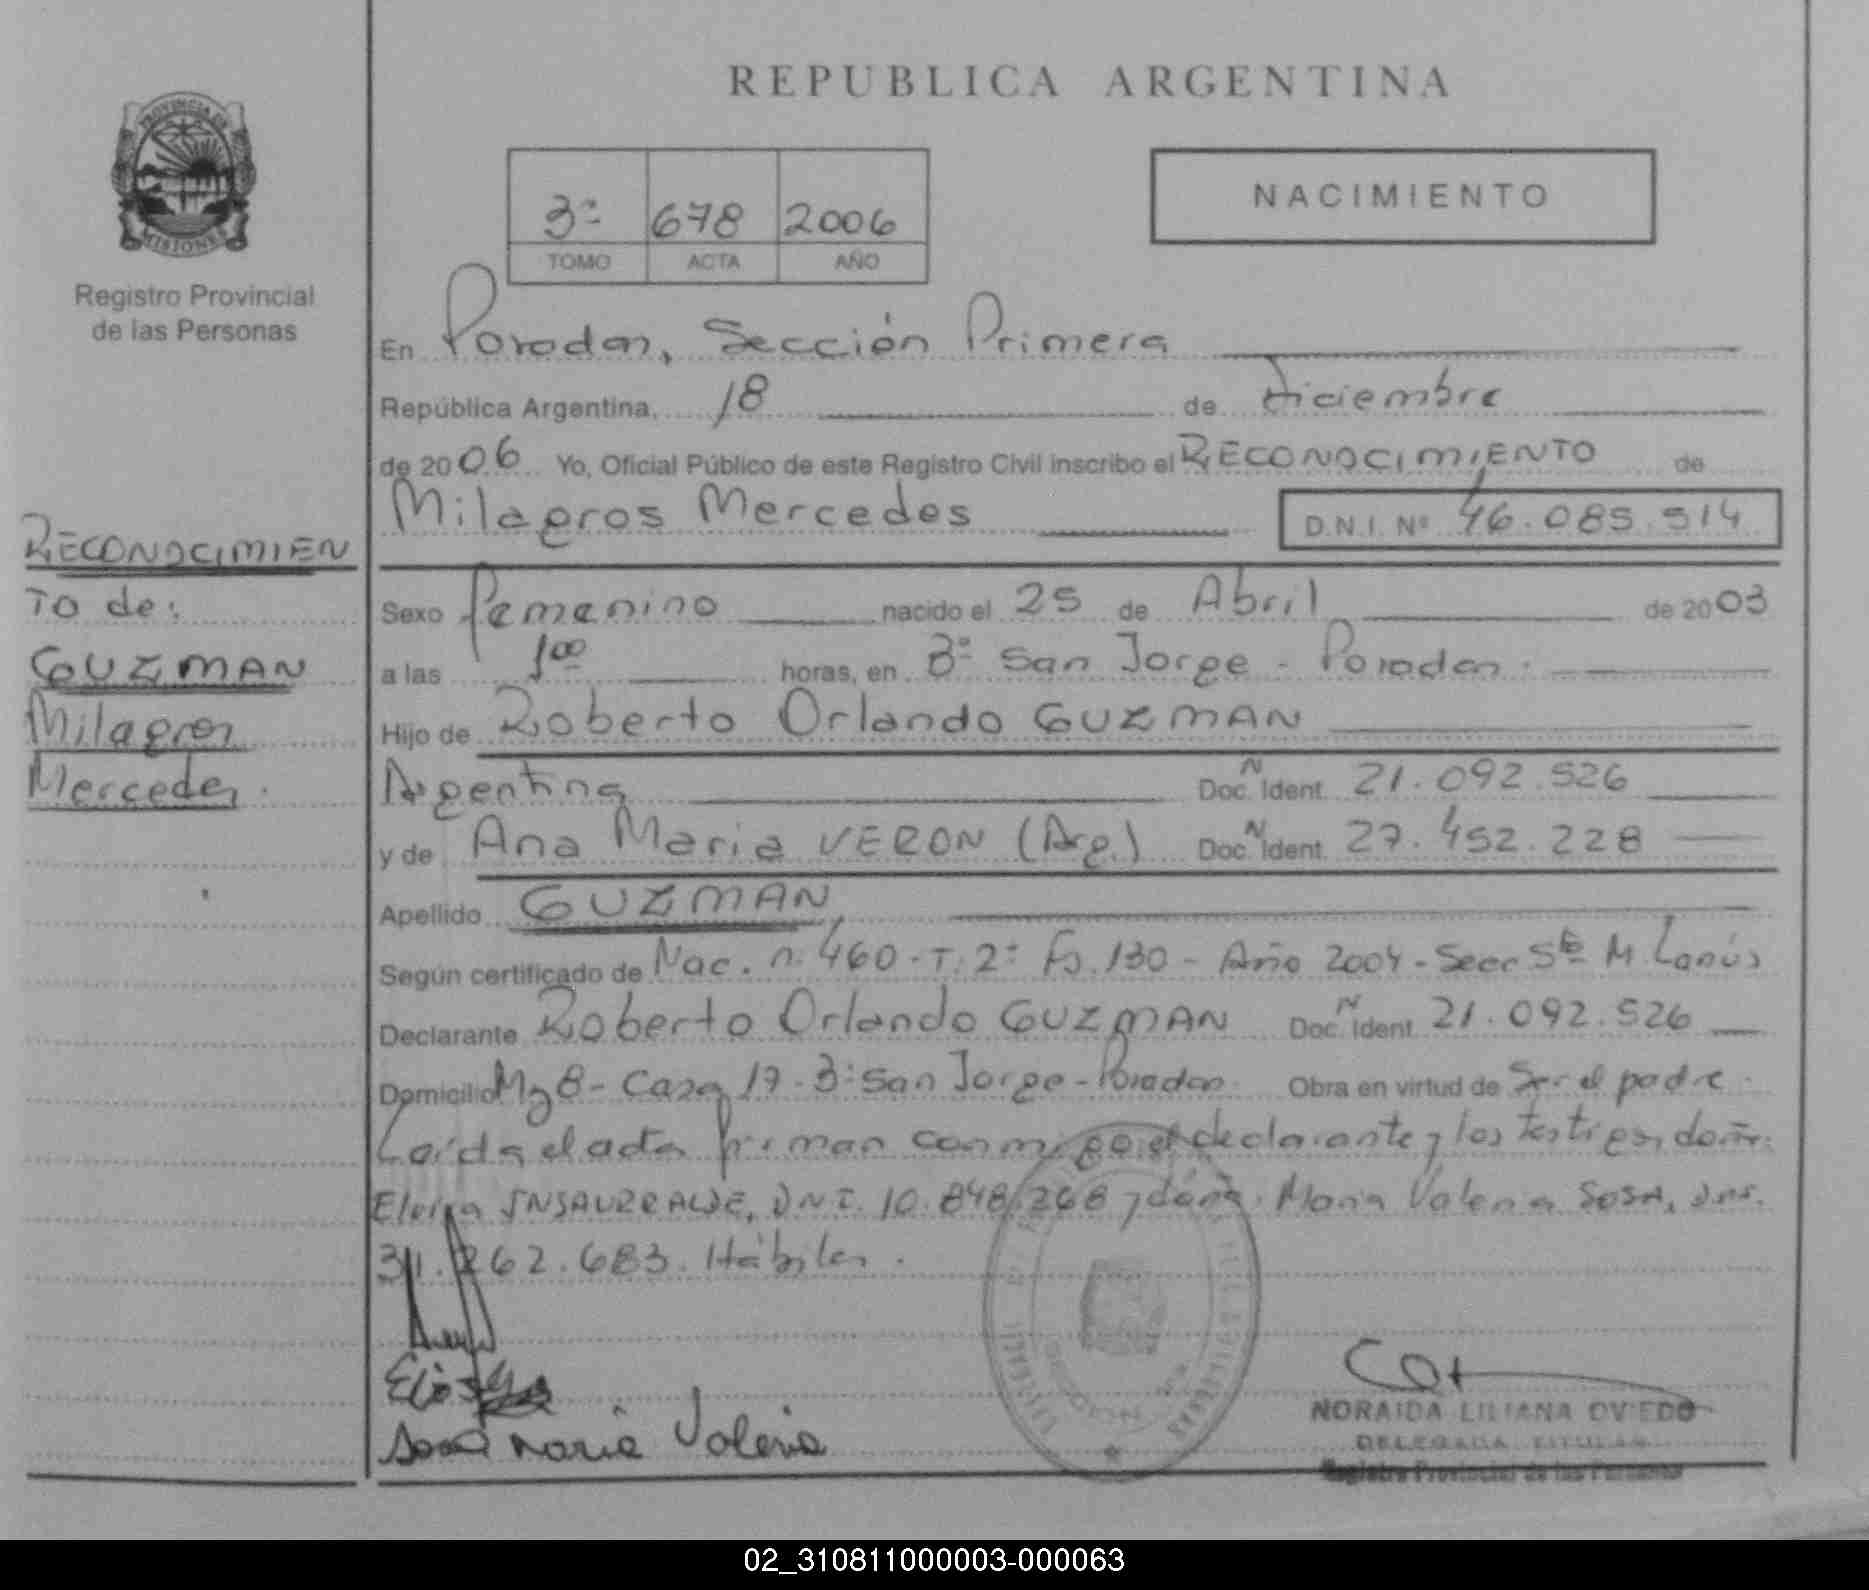 REPUBLICA ARGENTINA
PROVINCIA DE
MISIONES
Registro Provincial
de las Personas
3ª 678 2006
TOMO ACTA AÑO
NACIMIENTO
En Posadas, Sección Primera
República Argentina, 18 de Diciembre
de 2006 Yo, Oficial Público de este Registro Civil inscribo el RECONOCIMIENTO de
Milagros Mercedes D.N.I. Nº 46.085.514
RECONOCIMIEN
To de:
GUZMAN
Milagros
Mercedes.
Sexo Femenino nacido el 25 de Abril de 2003
a las 100 horas, en Bº San Jorge - Posadas.
Hijo de Roberto Orlando GUZMAN
Argentina Doc. N Ident. 21.092.526
y de Ana Maria VERON (Arg.) Doc. N Ident. 27.452.228
Apellido GUZMAN
Según certificado de Nac. n. 460 - T. 2º Fs. 130 - Año 2004 - Secc Sta M Lanús
Declarante Roberto Orlando GUZMAN Doc. N Ident. 21.092.526
Domicilio Mz 8 - Casa 17 - Bº San Jorge - Posadas. Obra en virtud de Ser el padre
Leída el acta firman conmigo el declarante y los testigos, doña:
Eloisa INSAURRALDE, DNI. 10.848.268 y doña: Maria Valeria SOSA, DNI.
31.262.683. Hábiles.
Sosa Maria Valeria
NORAIDA LILIANA OVIEDO
DELEGADA TITULAR
Registro Provincial de las Personas
02_310811000003-000063